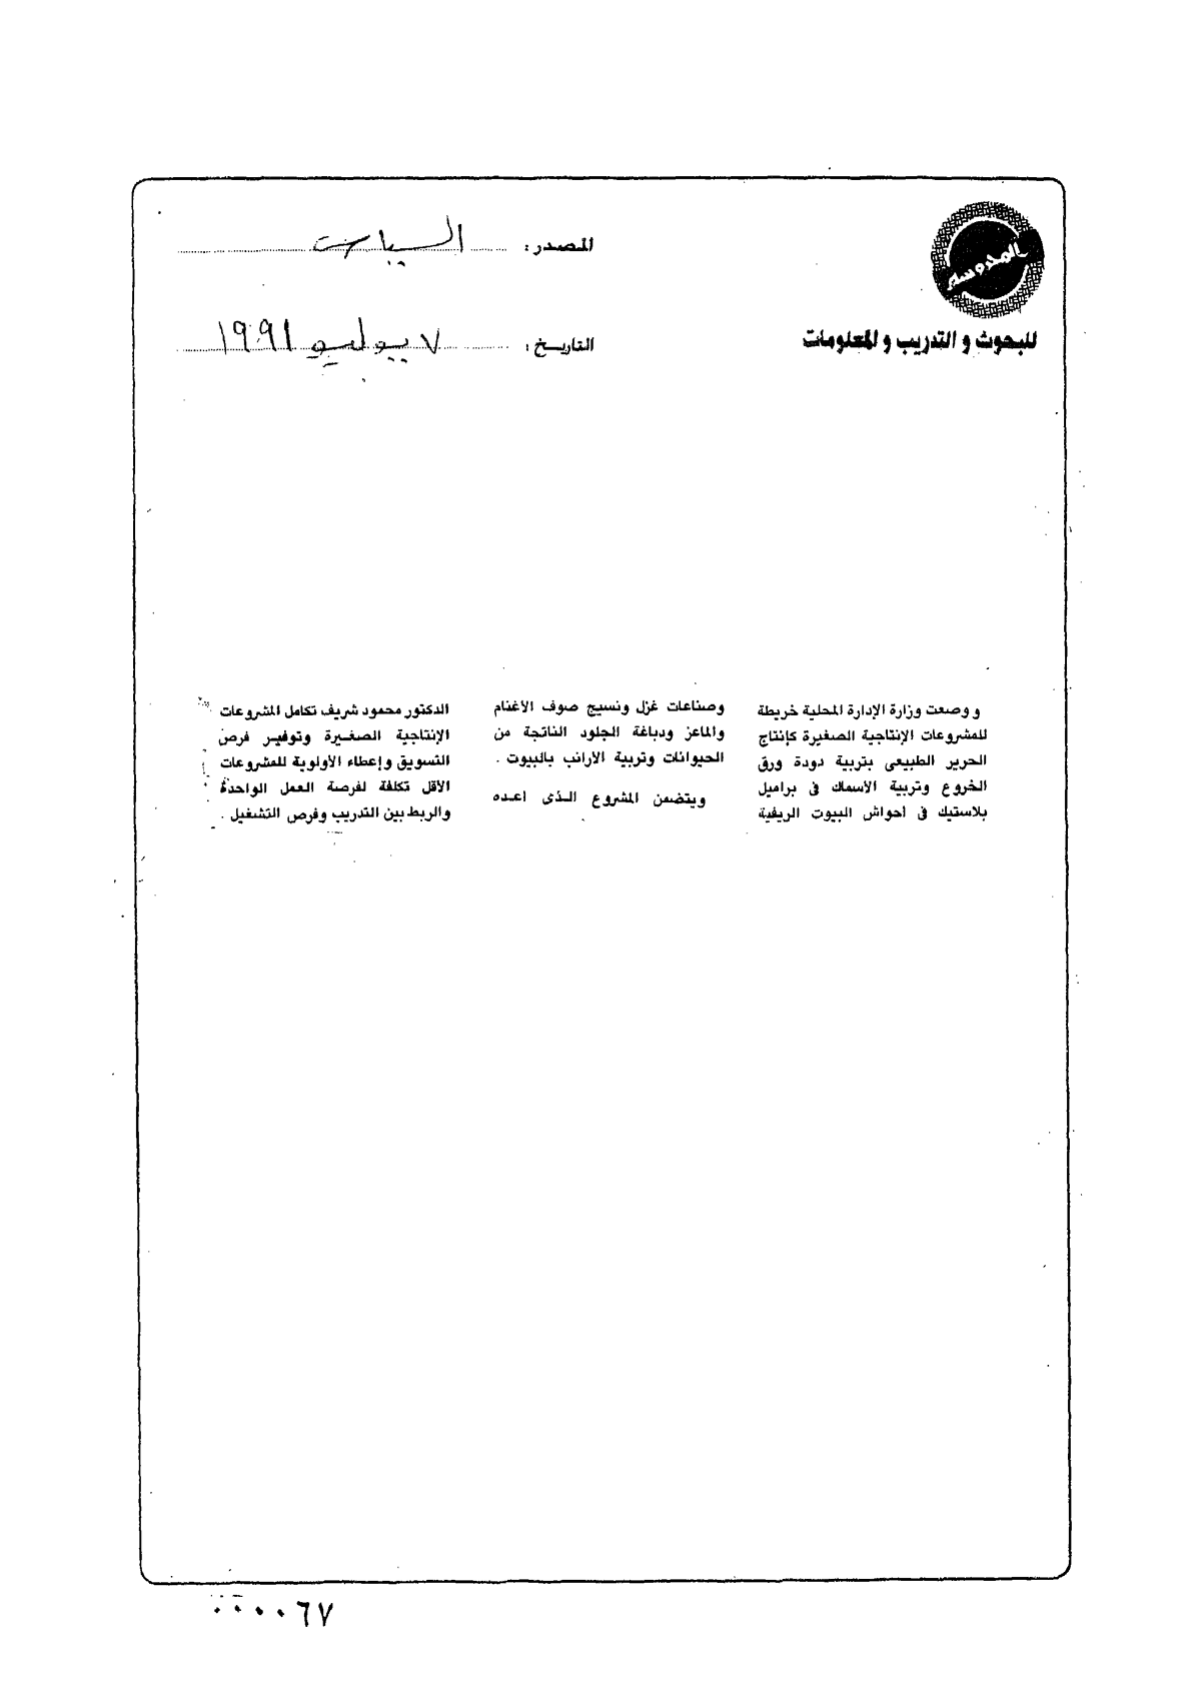 المحروسة
للبحوث و التدريب و المعلومات
المصدر:
التاريخ: ٧ يوليو ١٩٩١
و وضعت وزارة الإدارة المحلية خريطة
للمشروعات الإنتاجية الصغيرة كإنتاج
الحرير الطبيعى بتربية دودة ورق
الخروع وتربية الأسماك فى براميل
بلاستيك فى أحواش البيوت الريفية
وصناعات غزل ونسيج صوف الأغنام
والماعز ودباغة الجلود الناتجة من
الحيوانات وتربية الارانب بالبيوت .
ويتضمن المشروع الذى اعده
الدكتور محمود شريف تكامل المشروعات
الإنتاجية الصغيرة وتوفير فرص
التسويق وإعطاء الأولوية للمشروعات
الأقل تكلفة لفرصة العمل الواحدة
والربط بين التدريب وفرص التشغيل .
٠٠٠٠٦٧